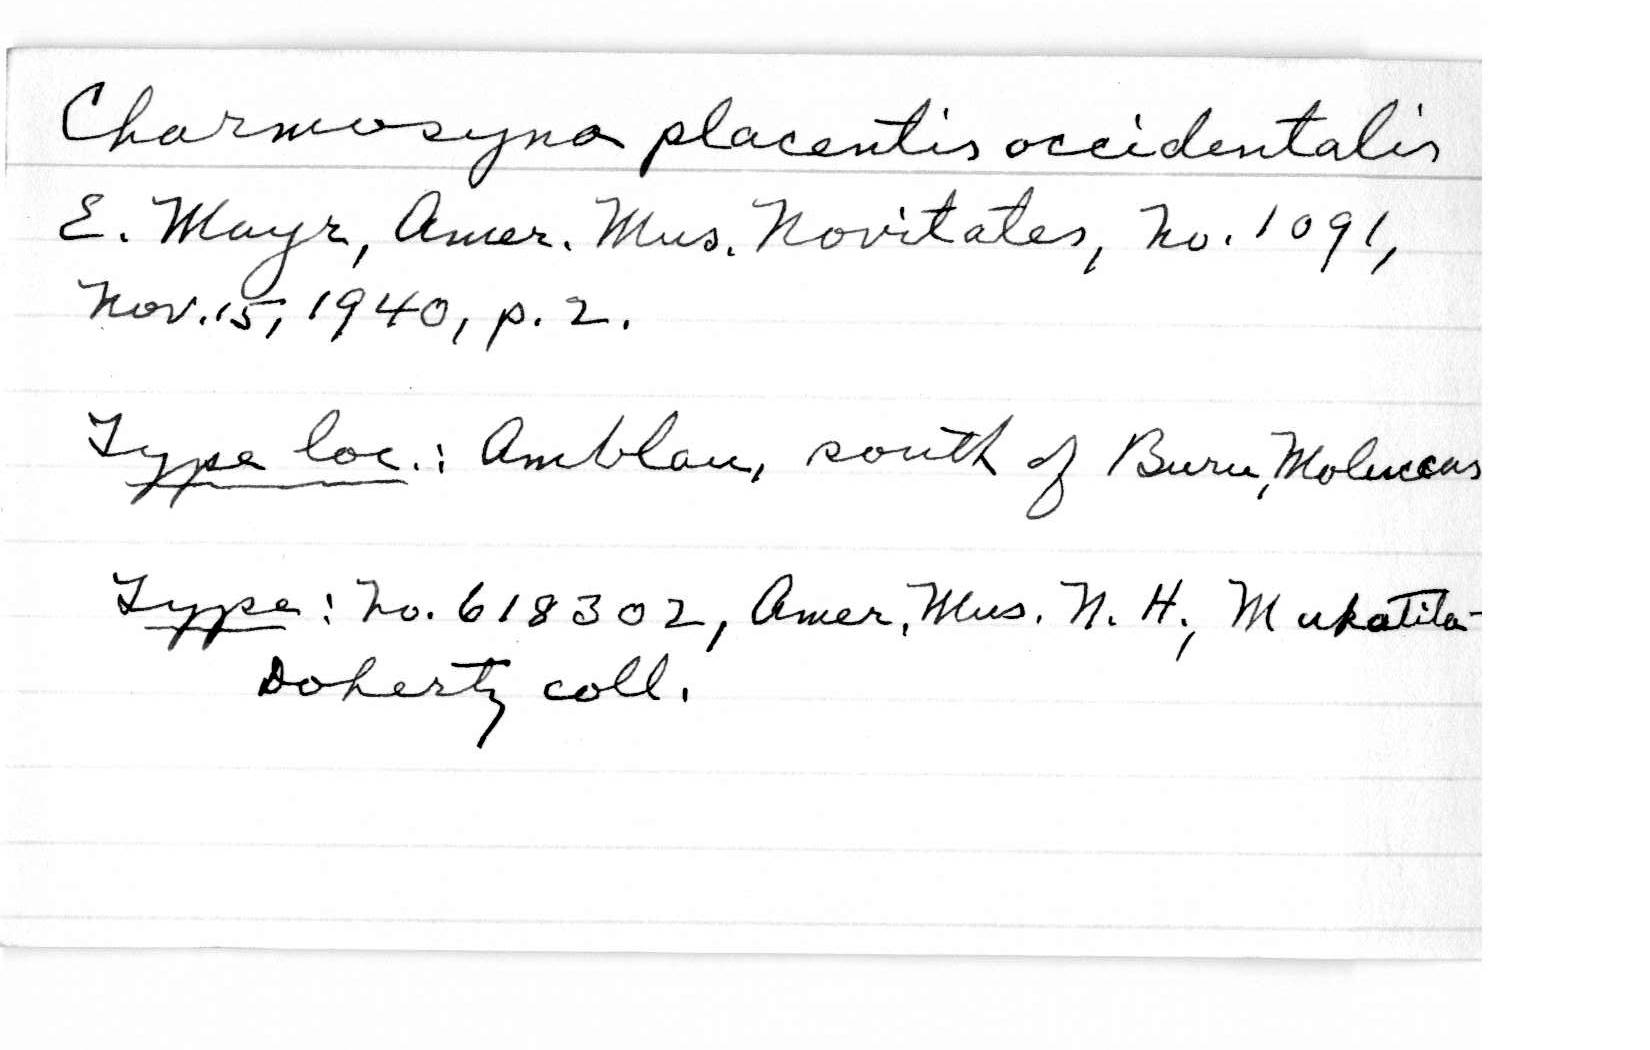 Charmosyna placentis occidentalis
E. Mayr, Amer. Mus. Novitates, no. 1091,
Nov. 15, 1940, p. 2.
Type loc.: Amblau, south of Buru, Moluccas
Type: no. 618302, Amer. Mus. N. H., Mukatila-
Doherty coll.